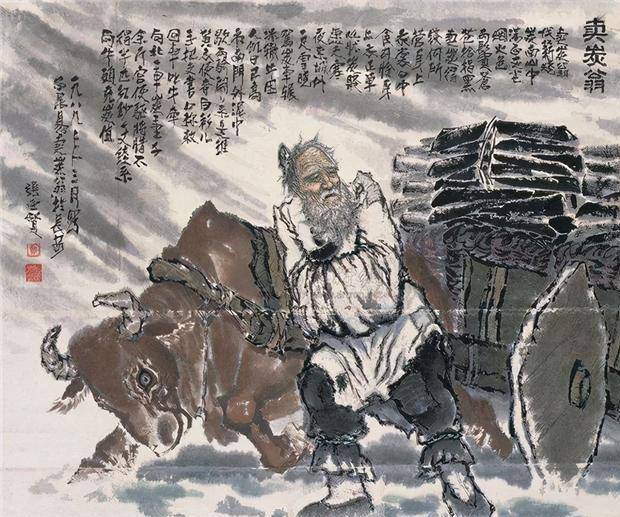 卖炭翁
卖炭翁
伐薪烧
炭南山中
满面尘灰
烟火色
两鬓苍
苍十指黑
卖炭得
钱何所
营身上
衣裳口中
食可怜身
上衣正单
心忧炭贱
愿天寒
夜来城外
一尺雪晓
驾炭车辗
冰辙牛困
人饥日已高
市南门外泥中
歇翩翩两骑来是谁
黄衣使者白衫儿
手把文书口称敕
回车叱牛牵
向北一车炭重千
余斤宫使驱将惜不
得半匹红纱一丈绫系
向牛头充炭值
一九八九年十二月写
白居易卖炭翁于长沙